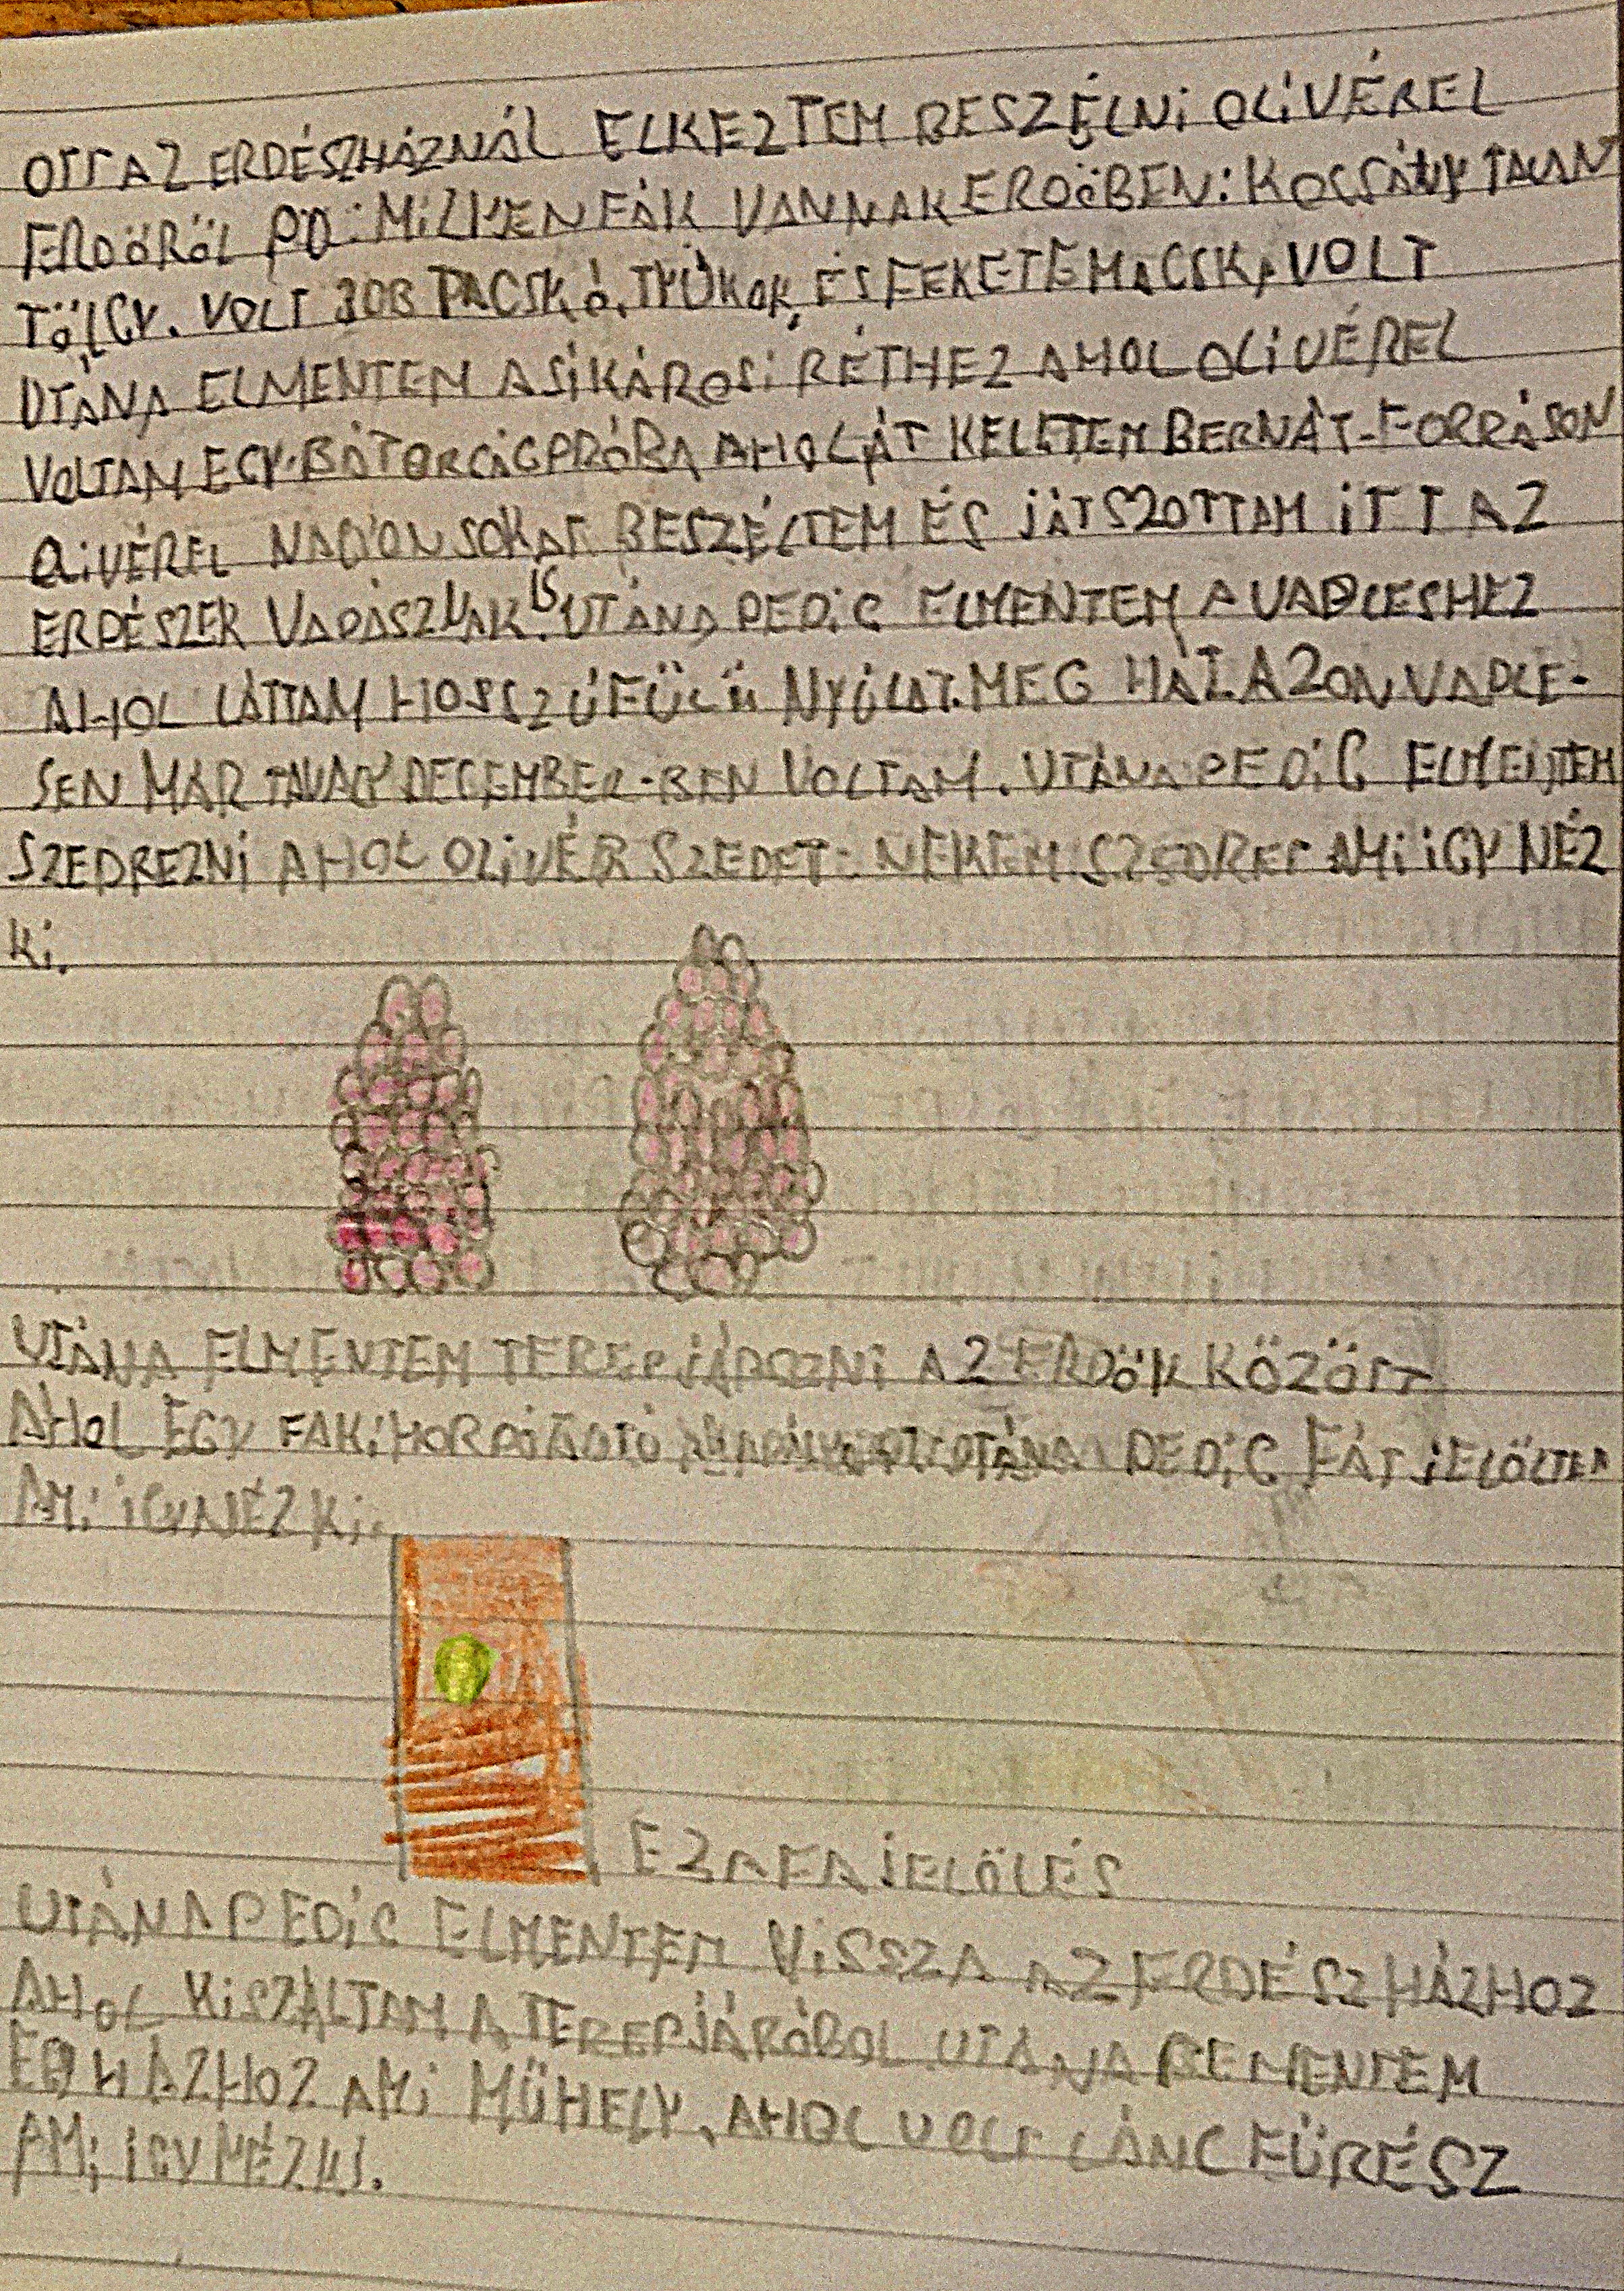 OTT AZ ERDÉSZHÁZNÁL ELKEZTEM BESZÉLNI OLIVÉREL
ERDÖRÖL PD: MILYEN FÁK VANNAK ERDÖBEN: KOCSÁNYTALAN
TÖLGY. VOLT 3 DB TACSKÓ, TYÚKOK, ÉS FEKETE MACSKA VOLT
UTÁNA ELMENTEM A SIKÁROSI RÉTHEZ AHOL OLIVÉREL
VOLTAM EGY BÁTORCÁGPRÓBA AHOL ÁT KELETEM BERNÁT-FORRÁSON
OLIVÉREL NAGYON SOKAT BESZÉLTEM ÉS JÁTSZOTTAM ITT AZ
ERDÉSZEK VADÁSZNAK IS. UTÁNA PEDIG ELMENTEM A VADLESHEZ
AHOL LÁTTAM HOSSZÚFÜLÜ NYÚLAT. MEG HÁT AZON VADLE-
SEN MÁR TAVALY DECEMBER-BEN VOLTAM. UTÁNA PEDIG ELMENTEM
SZEDREZNI AHOL OLIVÉR SZEDET NEKEM SZEDRET AMI IGY NÉZ
KI.
UTÁNA ELMENTEM TEREPJÁROZNI AZ ERDÖK KÖZÖTT
AHOL EGY FAKIHORDÓ PEDIG FÁT JELÖLTEM
AMI IGY NÉZ KI.
EZ A FA JELÖLÉS
UTÁNA PEDIG ELMENTEM VISSZA AZ ERDÉSZHÁZHOZ
AHOL KISZÁLTAM A TEREPJÁRÓBOL UTÁNA BEMENTEM
HÁZHOZ AMI MÜHELY, AHOL VOLT LÁNCFÜRÉSZ
AMI IGY NÉZ KI.